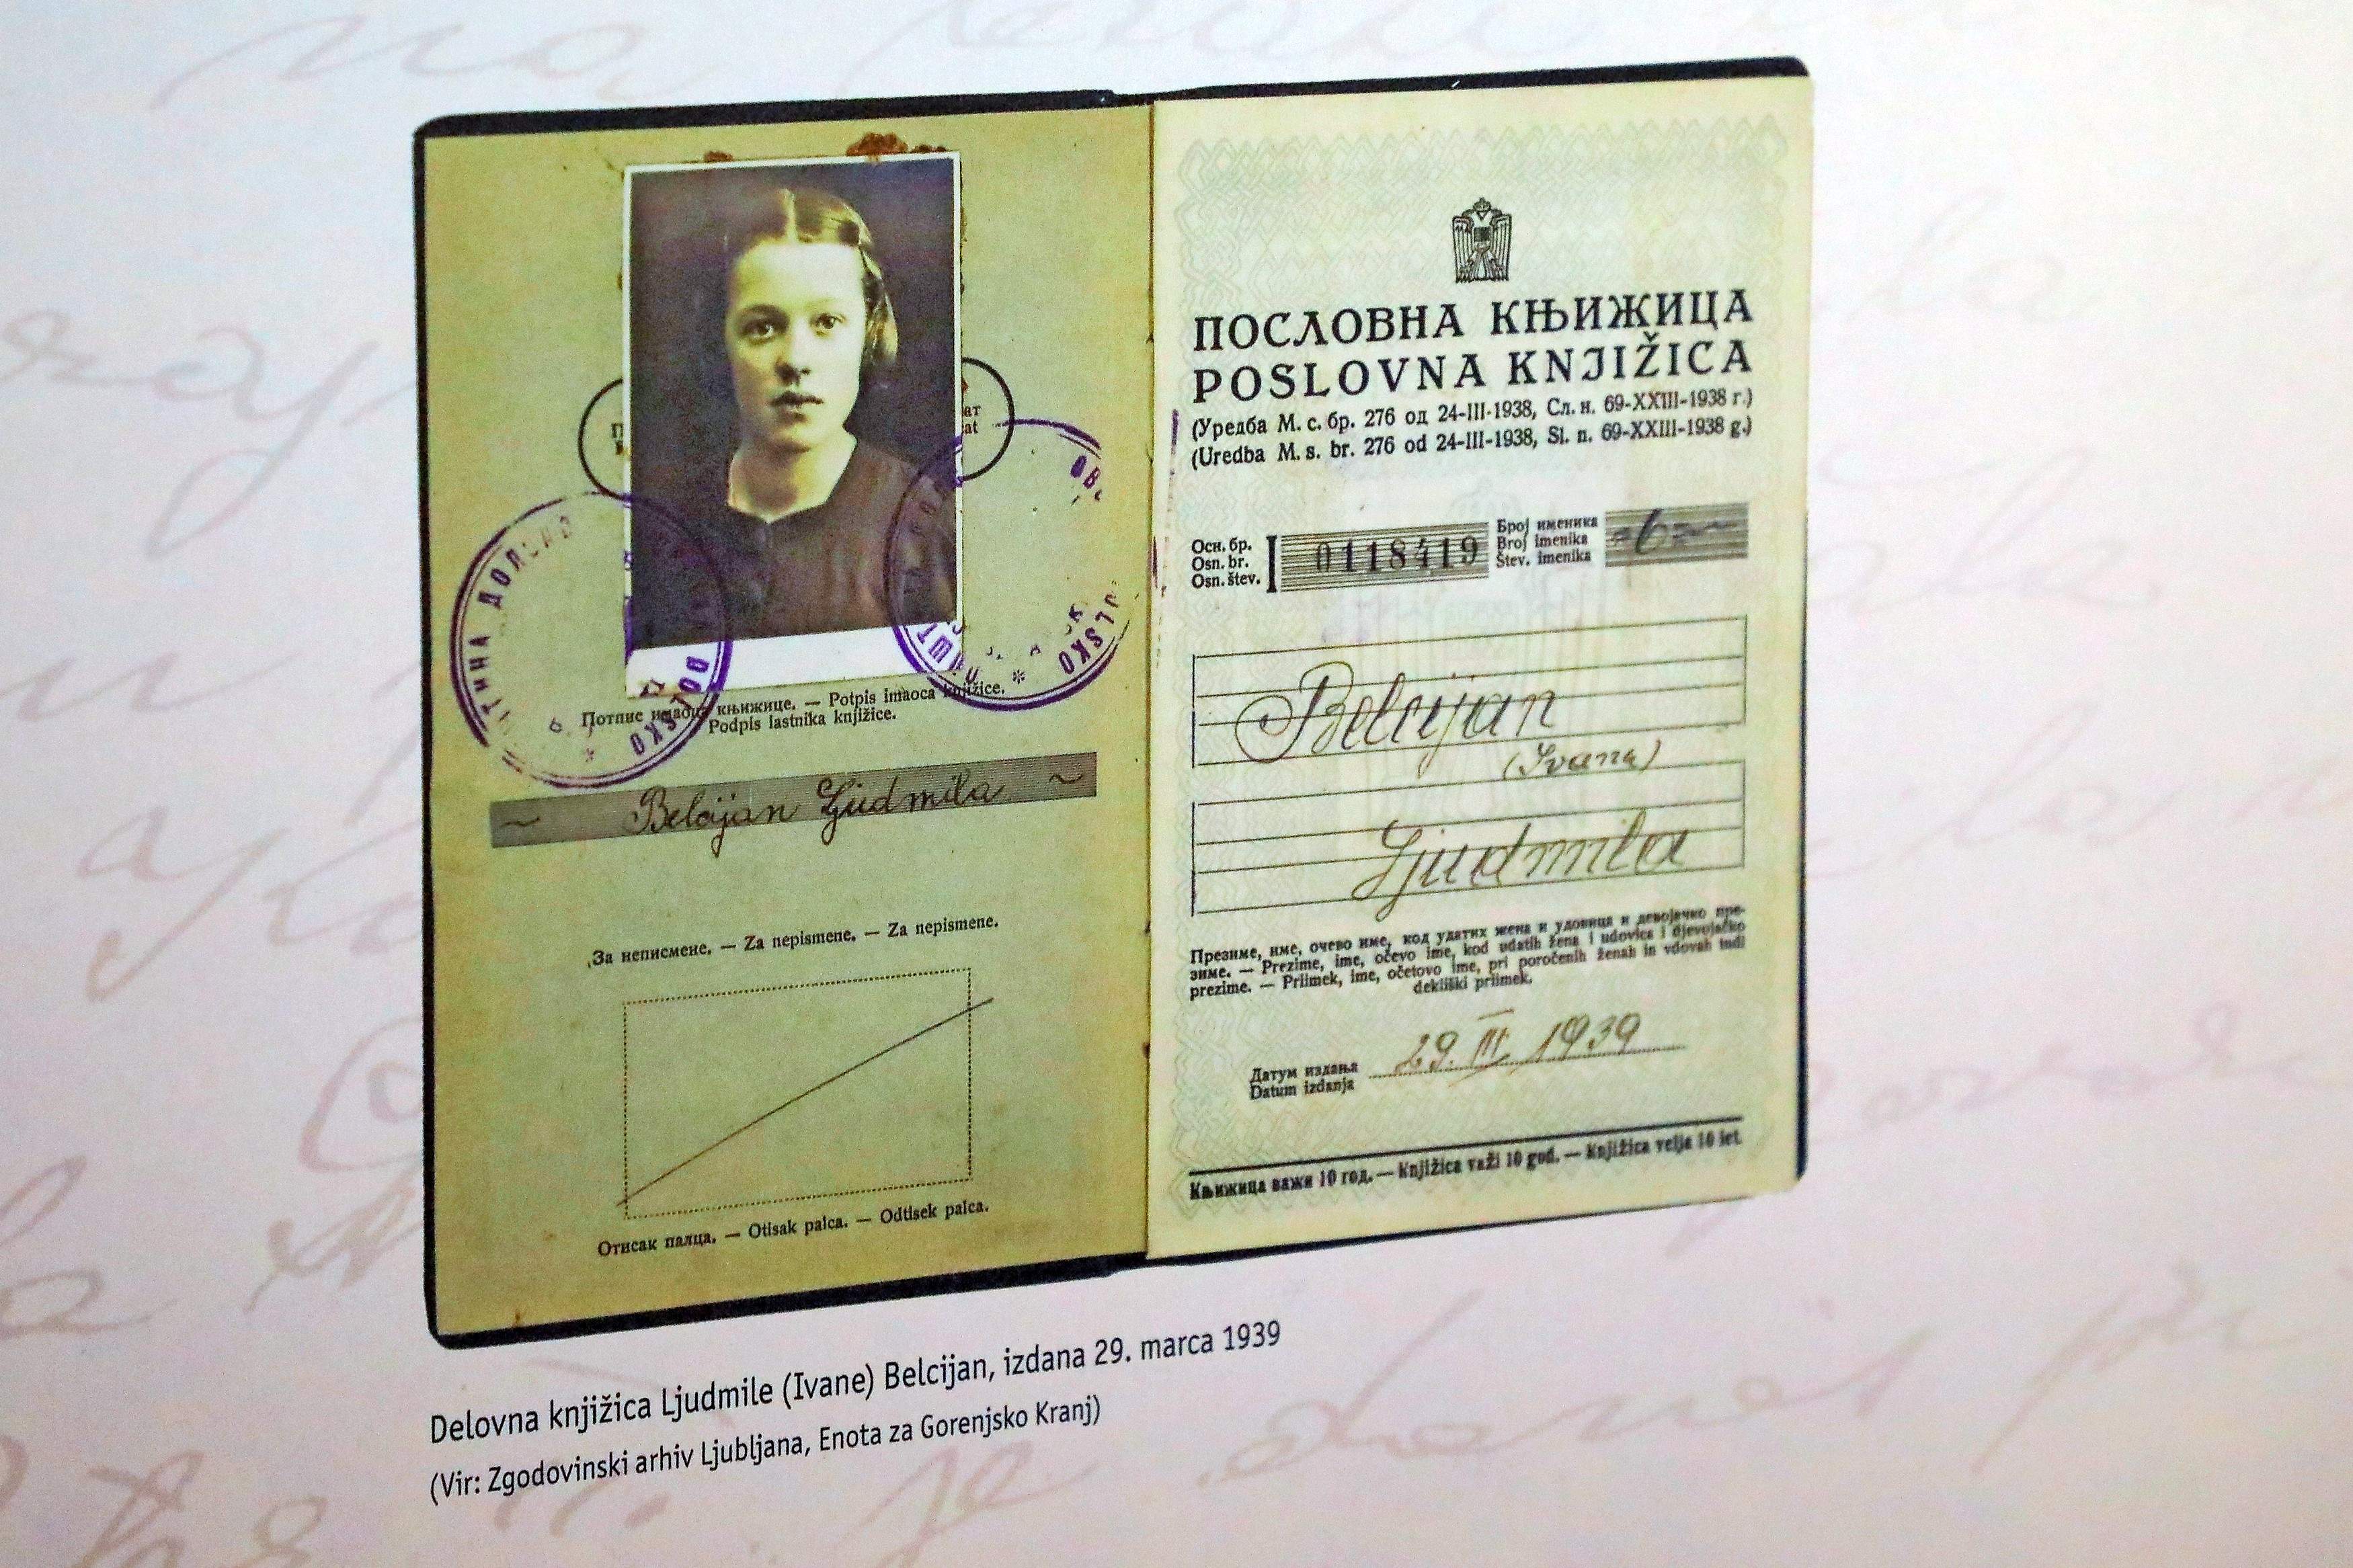 Потпис имаоца књижице. — Potpis imaoca knjižice.
Podpis lastnika knjižice.
~ Belcijan Ljudmila ~
За неписмене. — Za nepismene. — Za nepismene.
Отисак палца. — Otisak palca. — Odtisek palca.
ПОСЛОВНА КЊИЖИЦА
POSLOVNA KNJIŽICA
(Уредба М. с. бр. 276 од 24-III-1938, Сл. н. 69-XXIII-1938 г.)
(Uredba M. s. br. 276 od 24-III-1938, Sl. n. 69-XXIII-1938 g.)
Осн. бр.
Osn. br.
Osn. štev.
0118419
Број именика
Broj imenika
Štev. imenika
6
Belcijan
(Ivana)
Ljudmila
Презиме, име, очево име, код удатих жена и удовица и девојачко пре-
зиме. — Prezime, ime, očevo ime, kod udatih žena i udovica i djevojačko
prezime. — Priimek, ime, očetovo ime, pri poročenih ženah in vdovah tudi
dekliški priimek.
Датум издања
Datum izdanja
29. III 1939
Књижица важи 10 год. — Knjižica važi 10 god. — Knjižica velja 10 let.
Delovna knjižica Ljudmile (Ivane) Belcijan, izdana 29. marca 1939
(Vir: Zgodovinski arhiv Ljubljana, Enota za Gorenjsko Kranj)